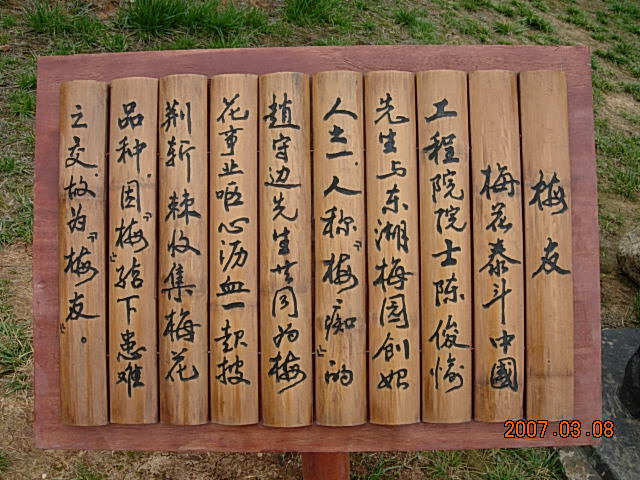 梅友
梅花泰斗中國
工程院院士陈俊愉
先生与东湖梅园创始
人之一,人称“梅痴”的
趙守边先生共同为梅
花事业呕心沥血一起披
荆斩棘收集梅花
品种,因“梅”结下患难
之交,故为“梅友”。
2007.03.08